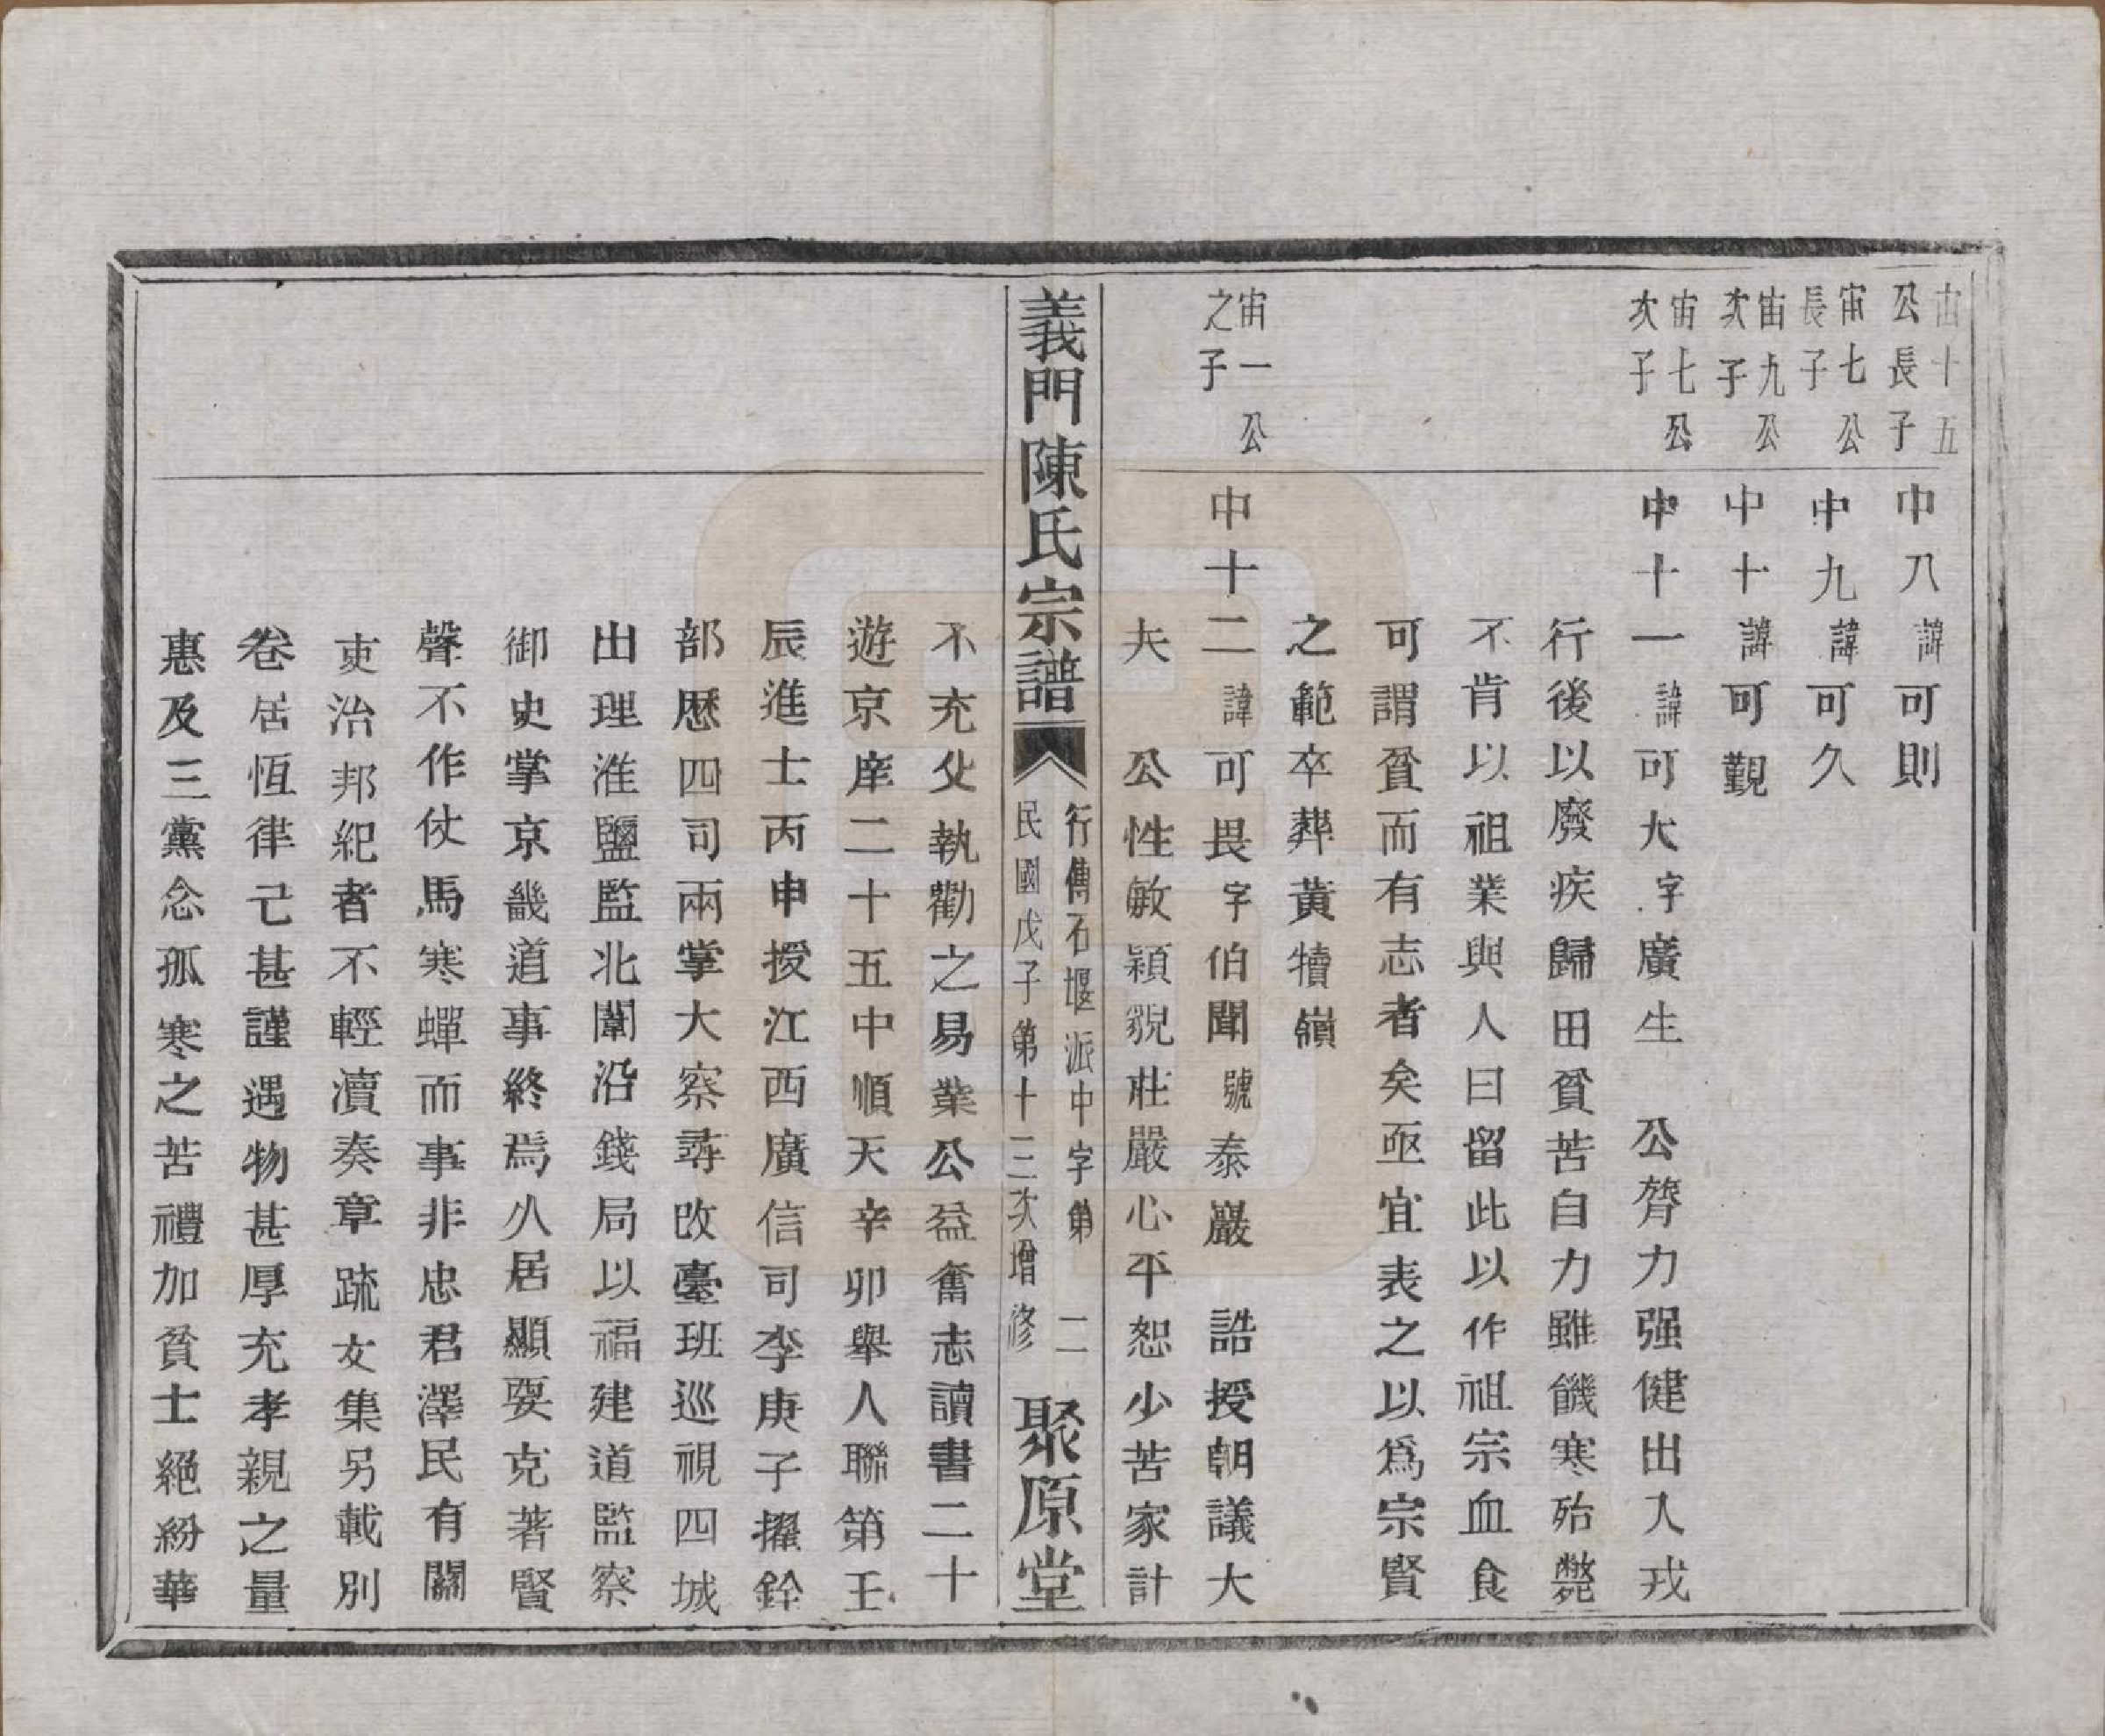 宙十五
公長子
中八諱可則
宙七公
長子
中九諱可久
宙九公
次子
中十諱可觀
宙七公
次子
中十一諱可大字廣生　公膂力强健出入戎
行後以廢疾歸田貧苦自力雖饑寒殆斃
不肯以祖業與人曰留此以作祖宗血食
可謂貧而有志者矣亟宜表之以爲宗賢
之範卒葬黃犢嶺
宙一公
之子
中十二諱可畏字伯聞號泰巖　誥授朝議大
夫　公性敏穎貌莊嚴心平恕少苦家計
義門陳氏宗譜
行傳石堰派中字第　二
民國戊子第十三次增修
聚原堂
不充父執勸之易業公益奮志讀書二十
遊京庠二十五中順天辛卯舉人聯第壬
辰進士丙申授江西廣信司李庚子擢銓
部歷四司兩掌大察尋改臺班巡視四城
出理淮鹽監北闈沿錢局以福建道監察
御史掌京畿道事終焉久居顯要克著賢
聲不作仗馬寒蟬而事非忠君澤民有關
吏治邦紀者不輕瀆奏章疏文集另載別
卷居恒律己甚謹遇物甚厚充孝親之量
惠及三黨念孤寒之苦禮加貧士絕紛華